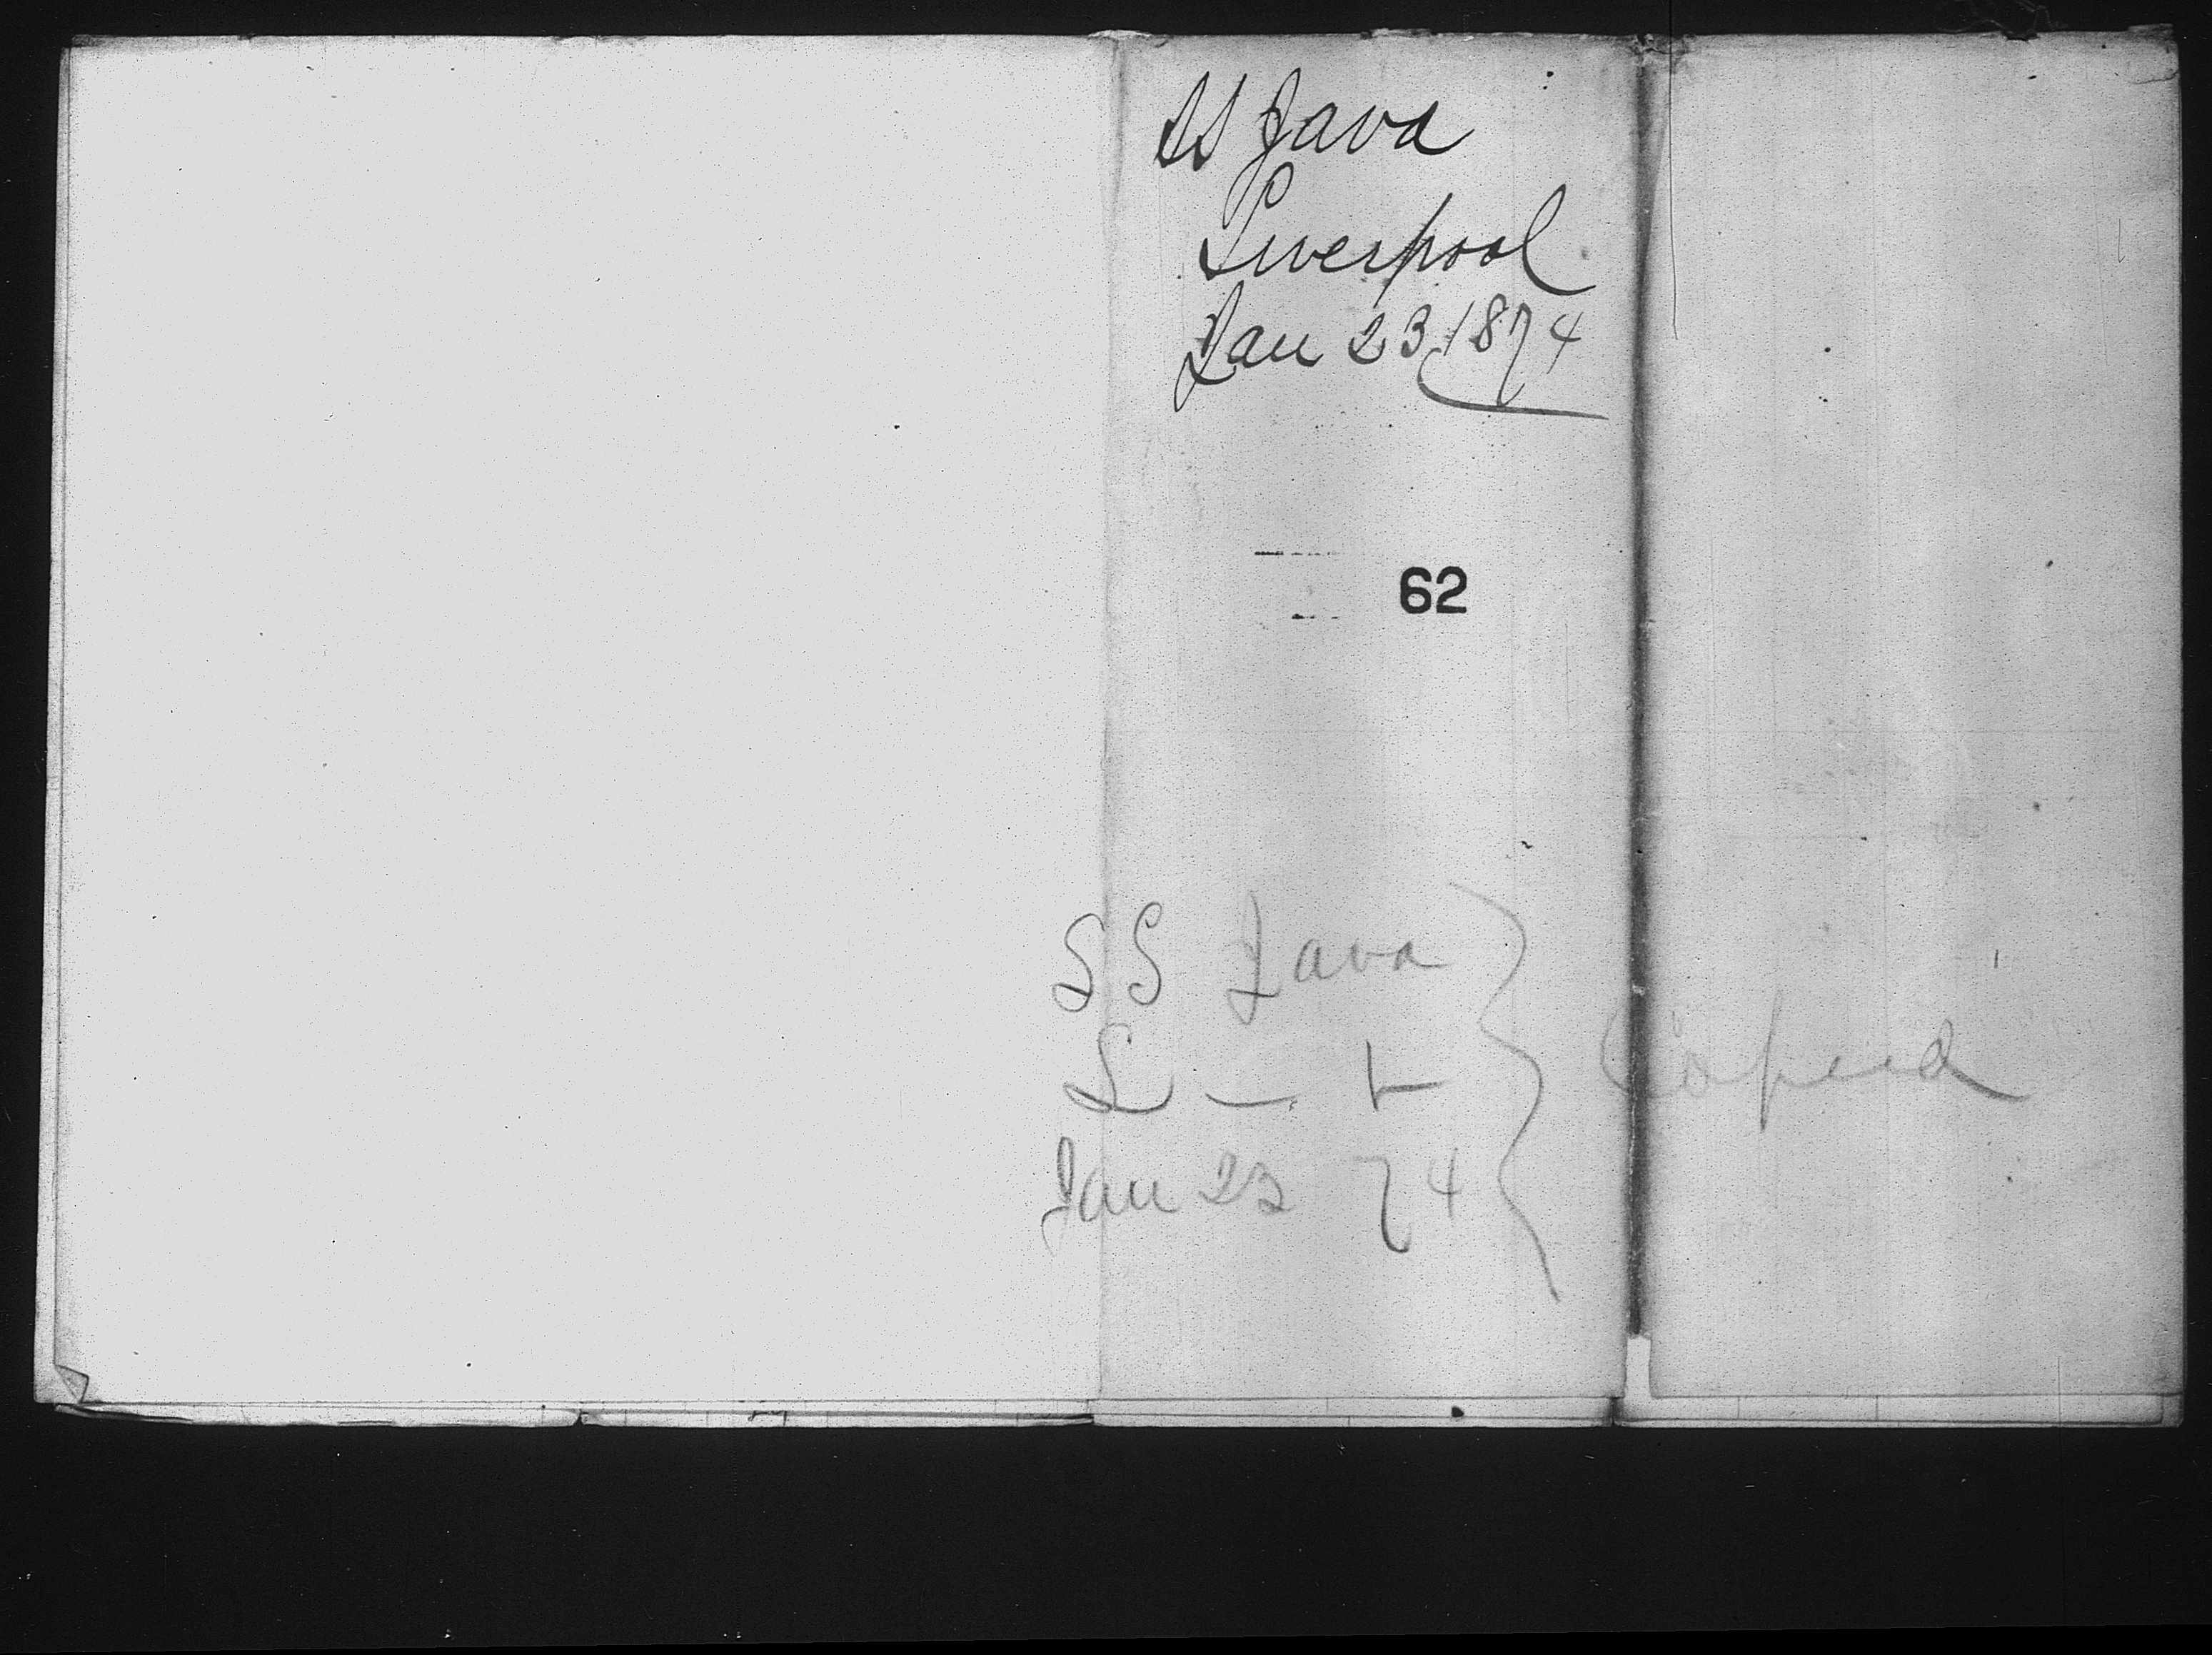 SS Java
Liverpool
Jan 23 1874
62
SS Java
L
Jan 23 74
Copied